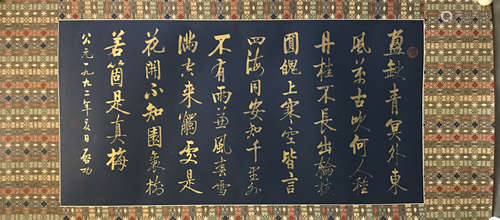 盈缺青冥外東
風萬古吹何人種
丹桂不長出輪枝
圓魄上寒空皆言
四海同安知千里外
不有雨兼風春雪
滿空來觸處是
花開不知園裏樹
若箇是真梅
公元一九九二年夏日 啓功